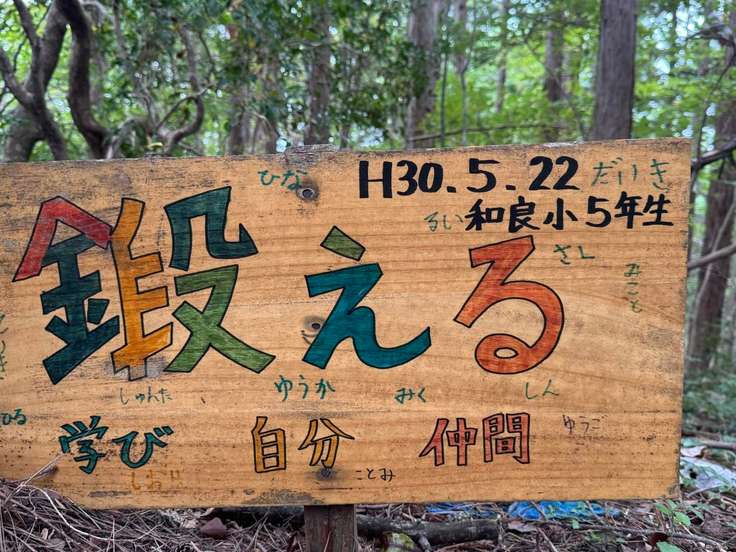 ひな H30.5.22 だいき
るい 和良小5年生
鍛える
さし
みこと
しゅんた ゆうか みく しん
ひろ
学び 自分 仲間
ゆうご
しおり
ことみ